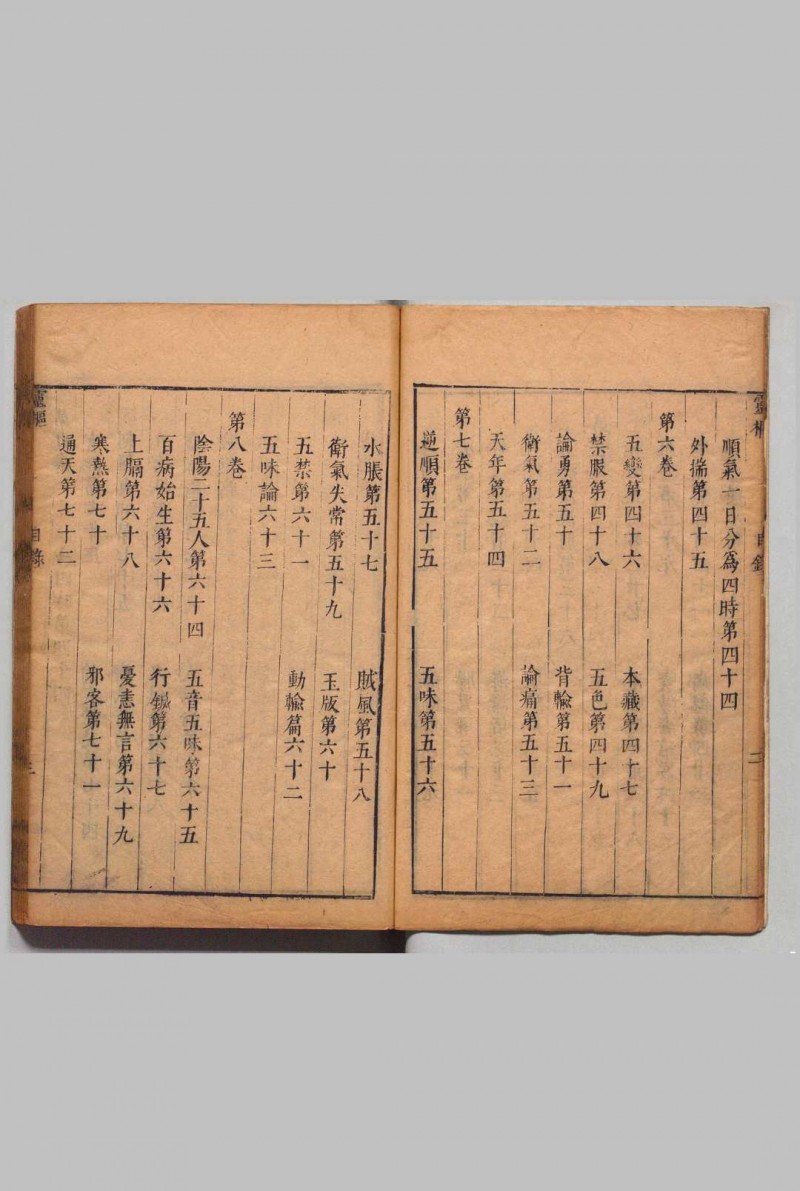 順氣一日分為四時第四十四
外揣第四十五
第六卷
五變第四十六 本藏第四十七
禁服第四十八 五色第四十九
論勇第五十 背腧第五十一
衛氣第五十二 論痛第五十三
天年第五十四
第七卷
逆順第五十五 五味第五十六
水脹第五十七 賊風第五十八
衛氣失常第五十九 玉版第六十
五禁第六十一 動輸篇六十二
五味論六十三
第八卷
陰陽二十五人第六十四 五音五味第六十五
百病始生第六十六 行鍼第六十七
上膈第六十八 憂恚無言第六十九
寒熱第七十 邪客第七十一
通天第七十二
靈樞 目錄 三